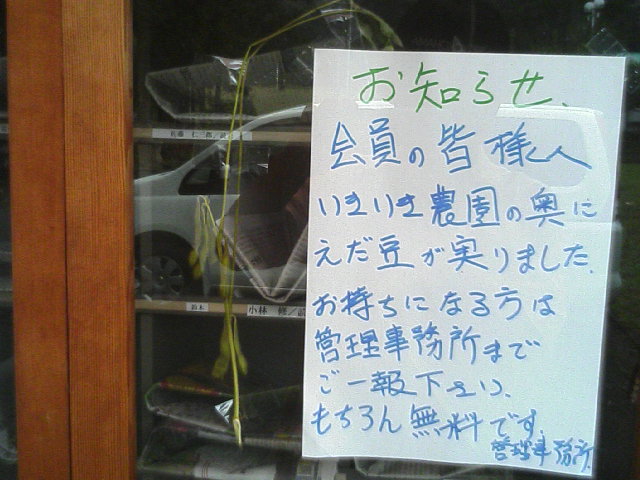 お知らせ、
会員の皆様へ
いきいき農園の奥に
えだ豆が実りました。
お持ちになる方は
管理事務所まで
ご一報下さい、
もちろん無料です。
管理事務所
佐藤 仁三郎
鈴木
小林 修